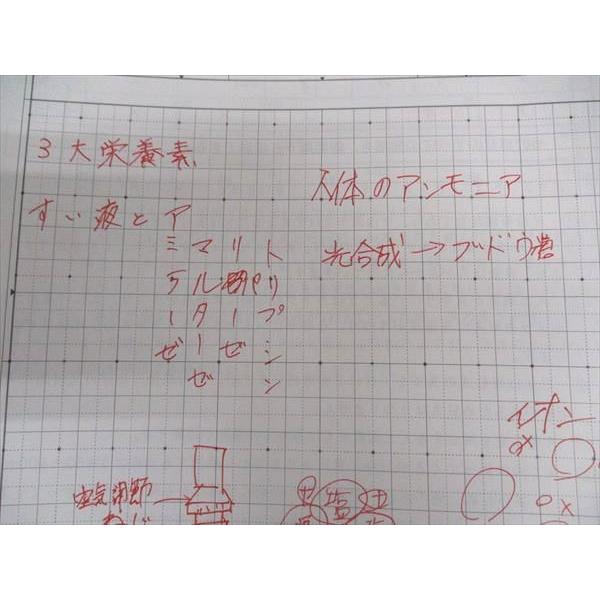 3大栄養素
人体のアンモニア
すい液とア
ミマリト
ラルパリ
ータープ
ゼーゼシ
ゼン
光合成→ブドウ糖
イオン
o×
空気調節
ねじ
塩
o×